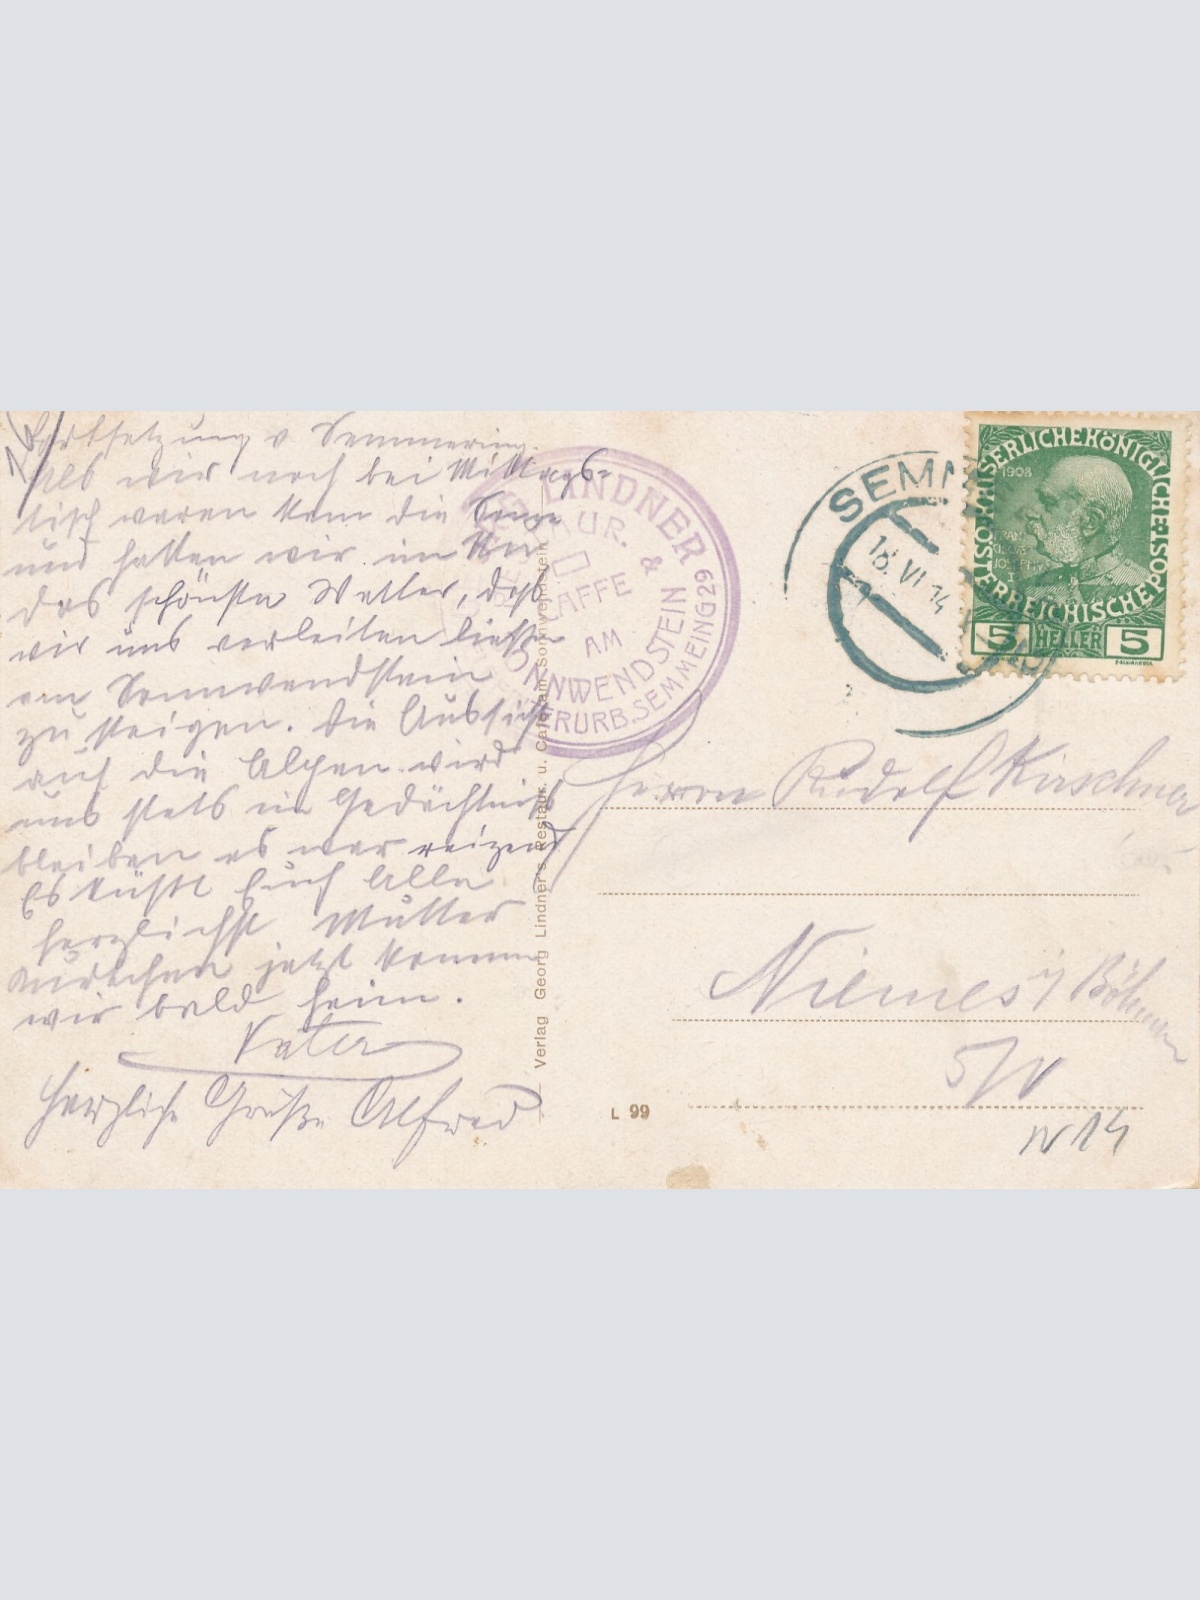 Fortsetzung v Semmering.
Als wir noch bei Mittags=
tisch waren kam die Sonne
und hatten wir im Nu
das schönste Wetter, daß
wir uns verleiten ließen
am Sonnwendstein
zu steigen. Die Aussicht
auf die Alpen wird
uns stets in Gedächtniß
bleiben es war reizend
Es küßt Euch Alle
herzlichst Mutter
jetzt kommen
wir bald heim.
Vater
Herzliche Grüße Alfred
LINDNER
RESTAUR. &
CAFFE
AM
SONNWENDSTEIN
SEMMEING 29
Verlag Georg Lindner's Restaur. u. Café am Sonnwendstein
SEMM
18. VI 14
KAISERLICHEKÖNIGLICHE
ÖSTERREICHISCHE POST
1908
5 HELLER 5
Herrn Rudolf Kirschner
Niemes i/ Böhmen
L 99
N 14